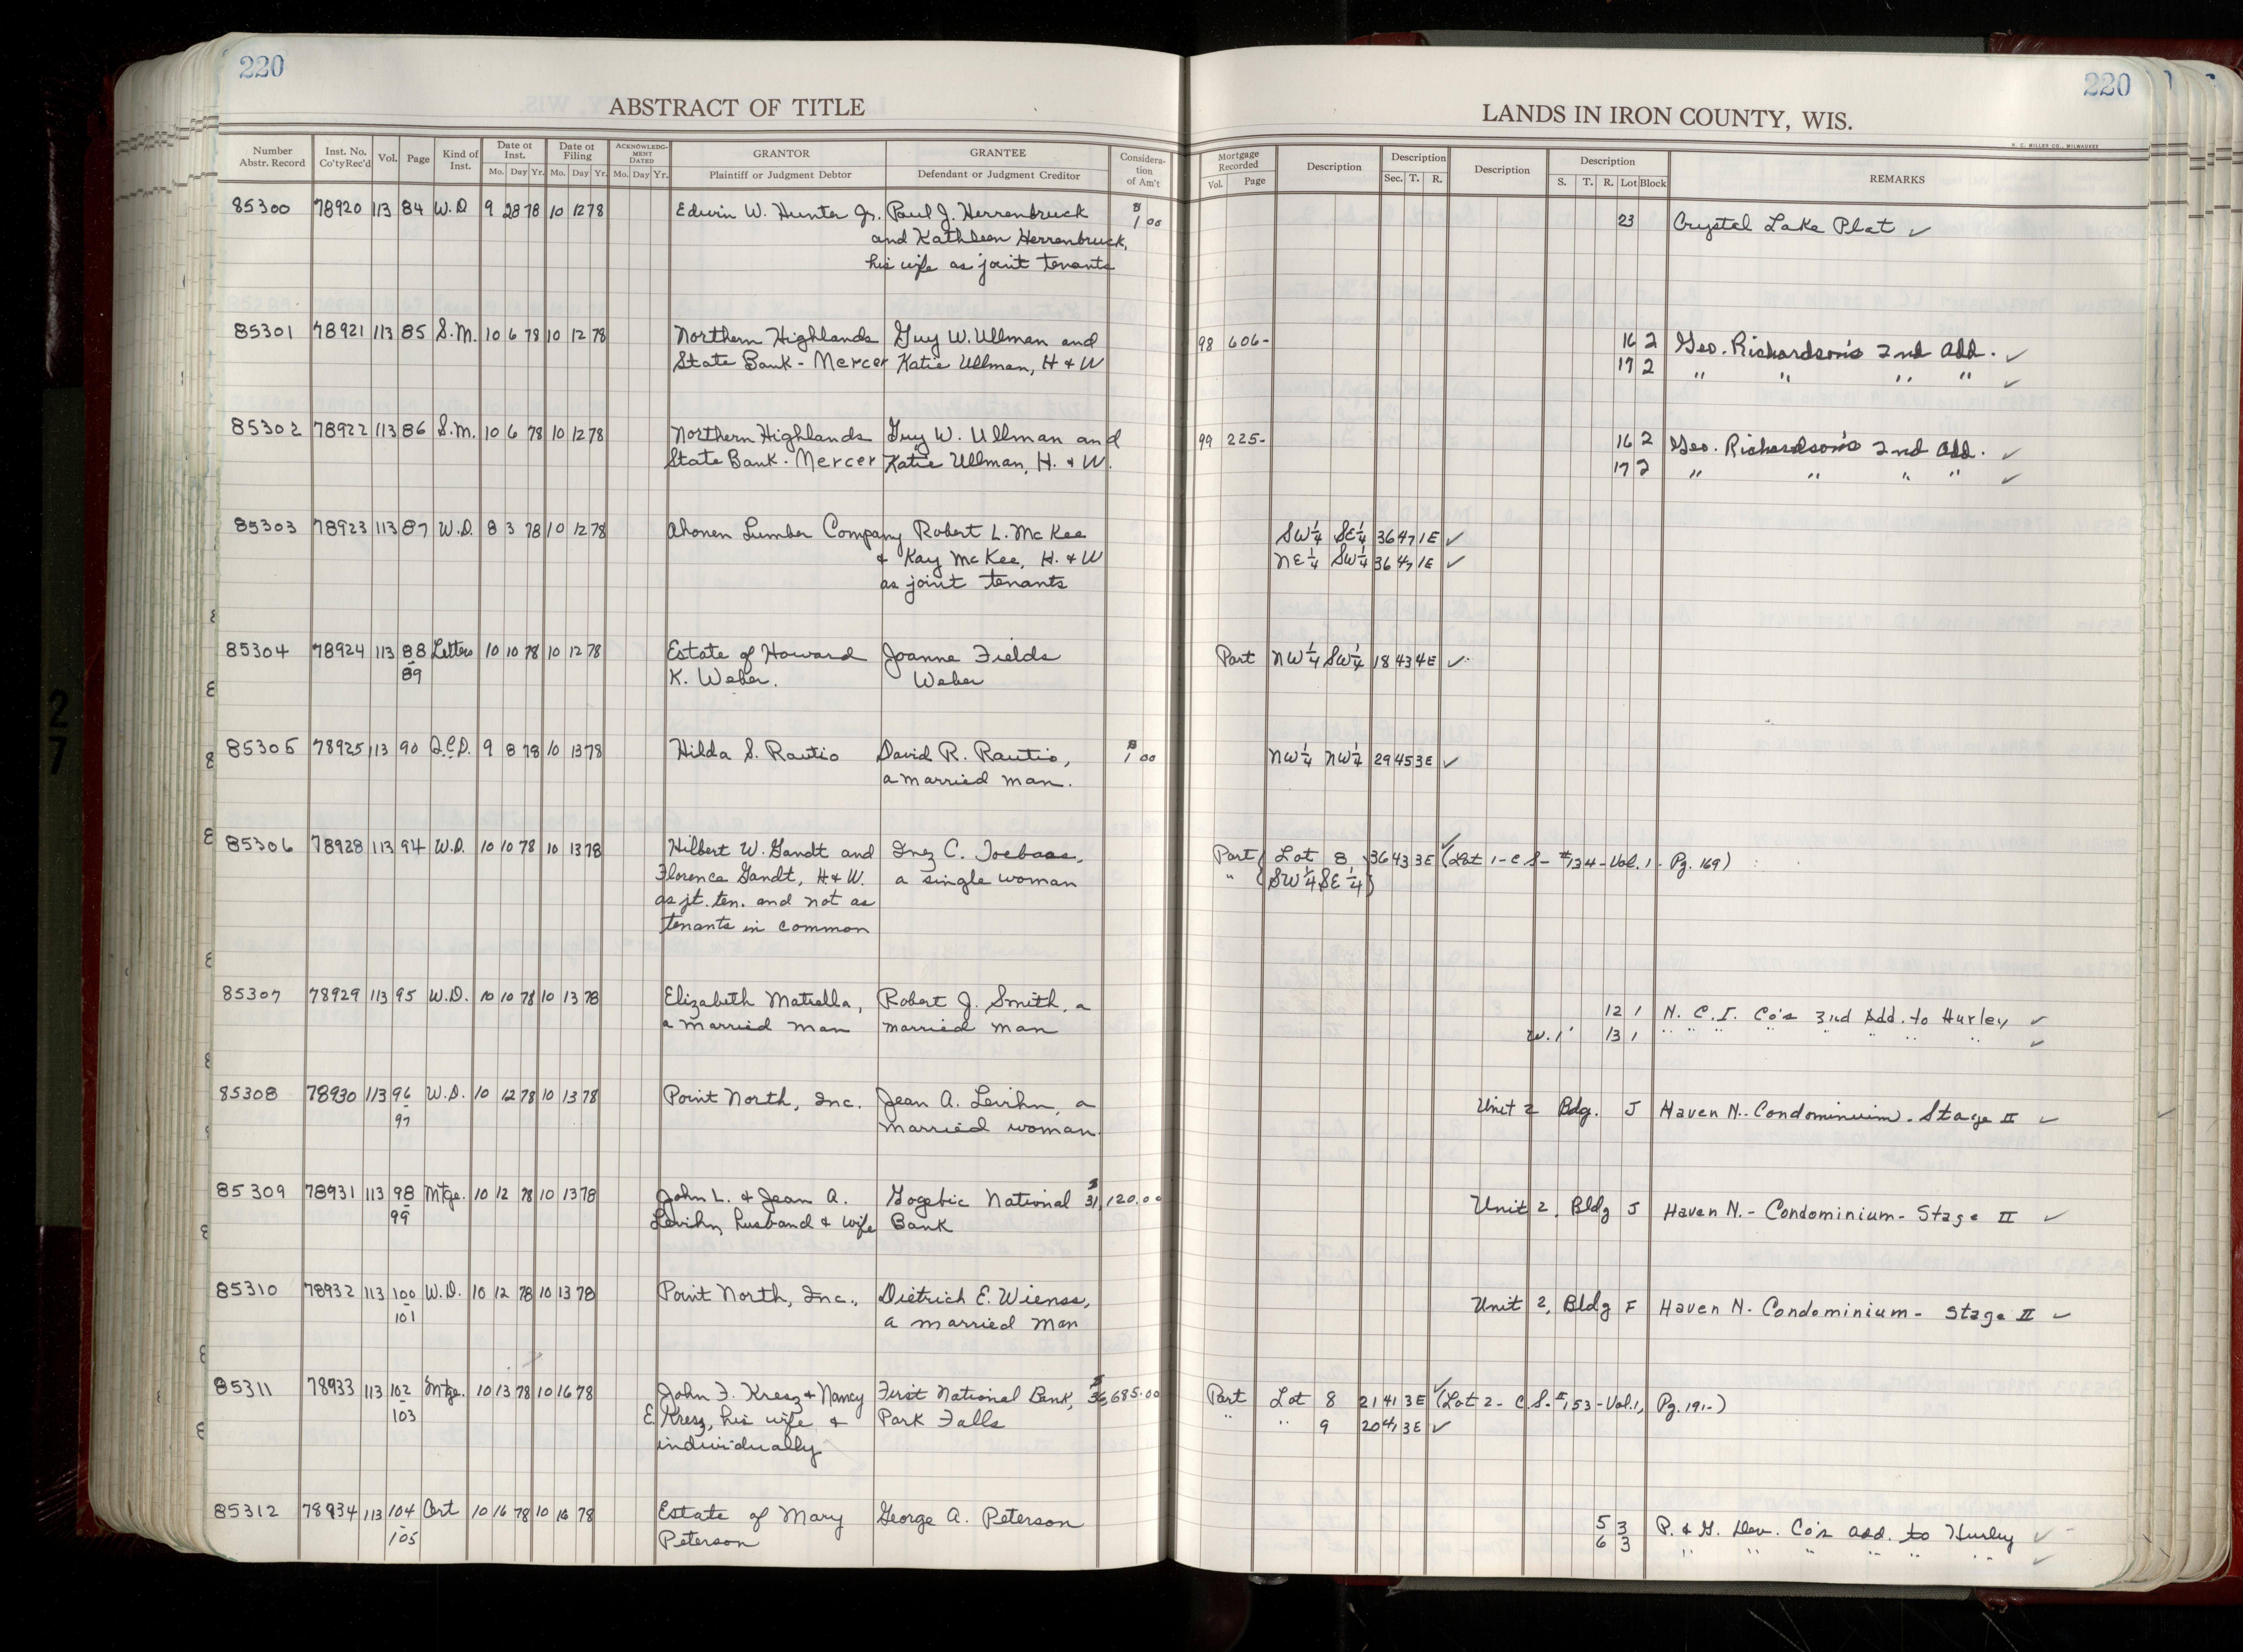 220
220
ABSTRACT OF TITLE
LANDS IN IRON COUNTY, WIS.
H. C. MILLER CO., MILWAUKEE
Number Abstr. Record Inst. No. Co'tyRec'd Vol. Page Kind of Inst. Date of Inst. Mo. Day Yr. Date of Filing Mo. Day Yr. ACKNOWLEDGMENT DATED Mo. Day Yr. GRANTOR Plaintiff or Judgment Debtor GRANTEE Defendant or Judgment Creditor Consideration of Am't Mortgage Recorded Vol. Page Description Description Sec. T. R. Description Description S. T. R. Lot Block REMARKS
85300 78920 113 84 W.D 9 28 78 10 12 78 Edwin W. Hunter Jr. Paul J. Herrenbruck $1 00 23 Crystal Lake Plat ✓
and Kathleen Herrenbruck,
his wife as joint tenants
85301 78921 113 85 S.M. 10 6 78 10 12 78 Northern Highlands Guy W. Ullman and 98 606- 16 2 Geo. Richardson's 2nd Add. ✓
State Bank - Mercer Katie Ullman, H & W 17 2 " " " " ✓
85302 78922 113 86 S.M. 10 6 78 10 12 78 Northern Highlands Guy W. Ullman and 99 225- 16 2 Geo. Richardson's 2nd Add. ✓
State Bank - Mercer Katie Ullman, H. & W. 17 2 " " " " ✓
85303 78923 113 87 W.D. 8 3 78 10 12 78 Ahonen Lumber Company Robert L. McKee SW¼ SE¼ 36 47 1E ✓
& Kay McKee, H. & W NE¼ SW¼ 36 47 1E ✓
as joint tenants
85304 78924 113 88 Letters 10 10 78 10 12 78 Estate of Howard Joanne Fields Part NW¼ SW¼ 18 43 4E ✓
- 89 K. Weber. Weber
85305 78925 113 90 Q.C.D. 9 8 78 10 13 78 Hilda S. Rautio David R. Rautio, $1 00 NW¼ NW¼ 29 45 3E ✓
a married man.
85306 78928 113 94 W.D. 10 10 78 10 13 78 Hilbert W. Gandt and Inez C. Part ( Lot 8 ) 36 43 3E ✓ (Lot 1 - C S - #134 - Vol. 1 - Pg. 169)
Florence Gandt, H & W. a single woman " (SW¼ SE¼)
as jt. ten. and not as
tenants in common
85307 78929 113 95 W.D. 10 10 78 10 13 78 Elizabeth Robert J. Smith, a 12 1 N. C. I. Co's 3rd Add. to Hurley ✓
a married man married man W. 1' 13 1 " " " " " " " " ✓
85308 78930 113 96 W.D. 10 12 78 10 13 78 Point North, Inc. Jean A. Levihn, a Unit 2 Bdg. J Haven N. Condominium - Stage II ✓
- 97 married woman.
85309 78931 113 98 Mtge. 10 12 78 10 13 78 John L. & Jean A. Gogebic National $31,120.00 Unit 2, Bldg J Haven N. - Condominium - Stage II ✓
- 99 Levihn, husband & wife Bank
85310 78932 113 100 W.D. 10 12 78 10 13 78 Point North, Inc., Dietrich E. Wienss, Unit 2, Bldg F Haven N. Condominium - Stage II ✓
- 101 a married man
85311 78933 113 102 Mtge. 10 13 78 10 16 78 John F. Kresz & Nancy First National Bank, $36,685.00 Part Lot 8 21 41 3E ✓ (Lot 2 - C S - #153 - Vol. 1, Pg. 191-)
- 103 E. Kresz, his wife & Park Falls " " 9 20 41 3E ✓
individually
85312 78934 113 104 Cert 10 16 78 10 16 78 Estate of Mary George A. Peterson 5 3 P. & G. Dev. Co's add. to Hurley ✓
- 105 Peterson 6 3 " " " " " " ✓
27